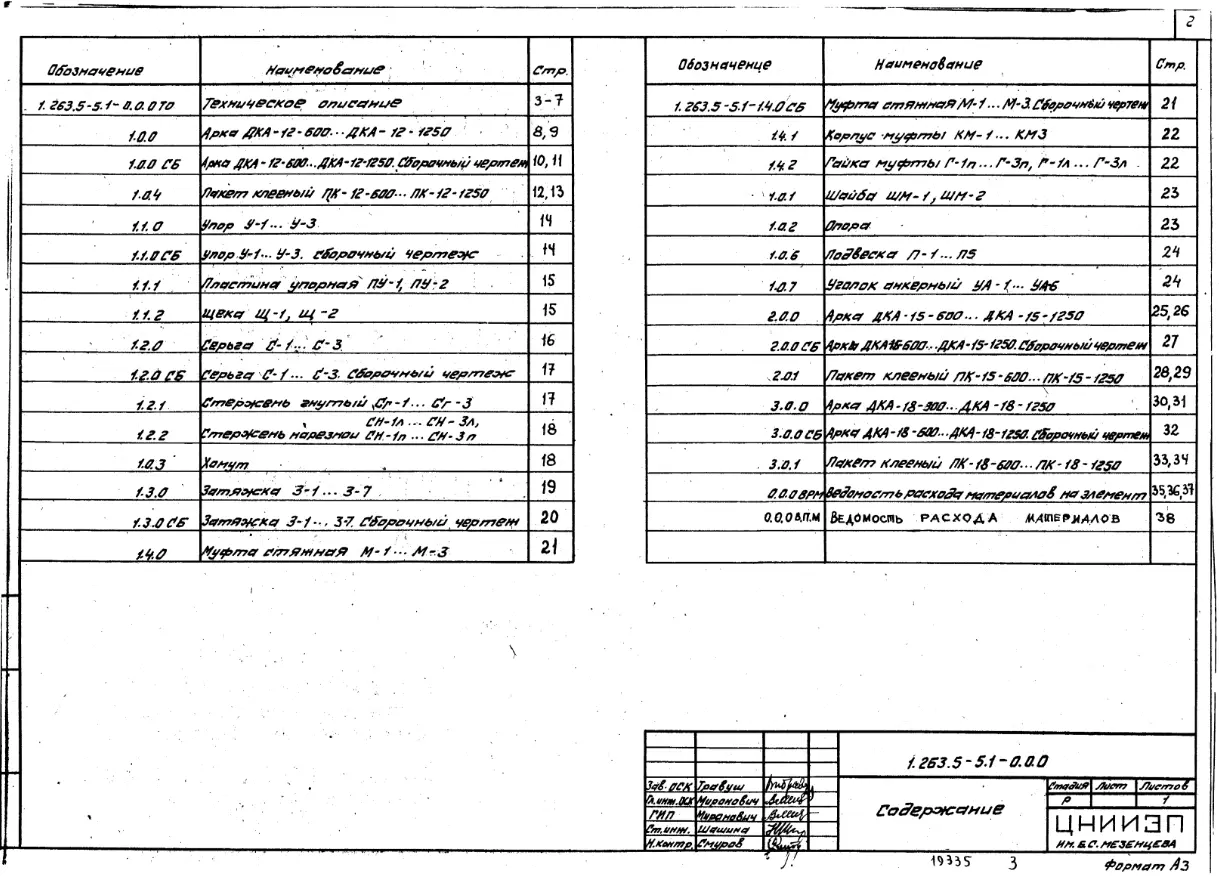 2
Обозначение Наименование Стр.
1.263.5-5.1-0.0.0ТО Техническое описание 3-7
1.0.0 Арка ДКА-12-600...ДКА-12-1250 8,9
1.0.0 СБ Арка ДКА-12-600...ДКА-12-1250. Сборочный чертеж 10,11
1.0.4 Пакет клееный ПК-12-600...ПК-12-1250 12,13
1.1.0 Упор У-1... У-3 14
1.1.0 СБ Упор У-1... У-3. Сборочный чертеж 14
1.1.1 Пластина упорная ПУ-1, ПУ-2 15
1.1.2 Щека Щ-1, Щ-2 15
1.2.0 Серьга С-1... С-3 16
1.2.0 СБ Серьга С-1... С-3. Сборочный чертеж 17
1.2.1 Стержень гнутый Сг-1... Сг-3 17
СН-1л ... СН-3л,
1.2.2 Стержень нарезной СН-1п ... СН-3п 18
1.0.3 Хомут 18
1.3.0 Затяжка З-1... З-7 19
1.3.0 СБ Затяжка З-1... З-7. Сборочный чертеж 20
1.4.0 Муфта стяжная М-1... М-3 21
Обозначение Наименование Стр.
1.263.5-5.1-1.4.0 СБ Муфта стяжная М-1... М-3. Сборочный чертеж 21
1.4.1 Корпус муфты КМ-1... КМ3 22
1.4.2 Гайка муфты Г-1п... Г-3п, Г-1л... Г-3л 22
1.0.1 Шайба ШМ-1, ШМ-2 23
1.0.2 Опора 23
1.0.6 Подвеска П-1... П5 24
1.0.7 Уголок анкерный УА-1... УА6 24
2.0.0 Арка ДКА-15-600... ДКА-15-1250 25,26
2.0.0 СБ Арки ДКА15-600...ДКА-15-1250. Сборочный чертеж 27
2.0.1 Пакет клееный ПК-15-600...ПК-15-1250 28,29
3.0.0 Арка ДКА-18-900...ДКА-18-1250 30,31
3.0.0 СБ Арка ДКА-18-600...ДКА-18-1250. Сборочный чертеж 32
3.0.1 Пакет клееный ПК-18-600...ПК-18-1250 33,34
0.0.0 ВРМ Ведомость расхода материалов на элемент 35,36,37
0.0.0 В.П.М Ведомость расхода материалов 38
1.263.5-5.1-0.0.0
Зав. ОСК Травуш
Гл.инж.ОСК Миронович
ГИП Миронович
Ст.инж. Шашина
Н.контр. Смуров
Содержание
Стадия Лист Листов
Р 1
ЦНИИЭП
ИМ. Б.С. МЕЗЕНЦЕВА
19335 3 Формат А3